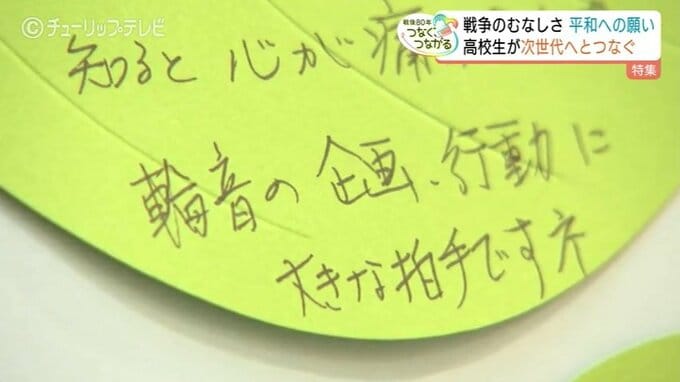 ©チューリップテレビ
戦後80年
つなぐ、
つながる
戦争のむなしさ 平和への願い
高校生が次世代へとつなぐ
特集
知ると 心が 痛
輪音の 企画、行動に
大きな拍手です